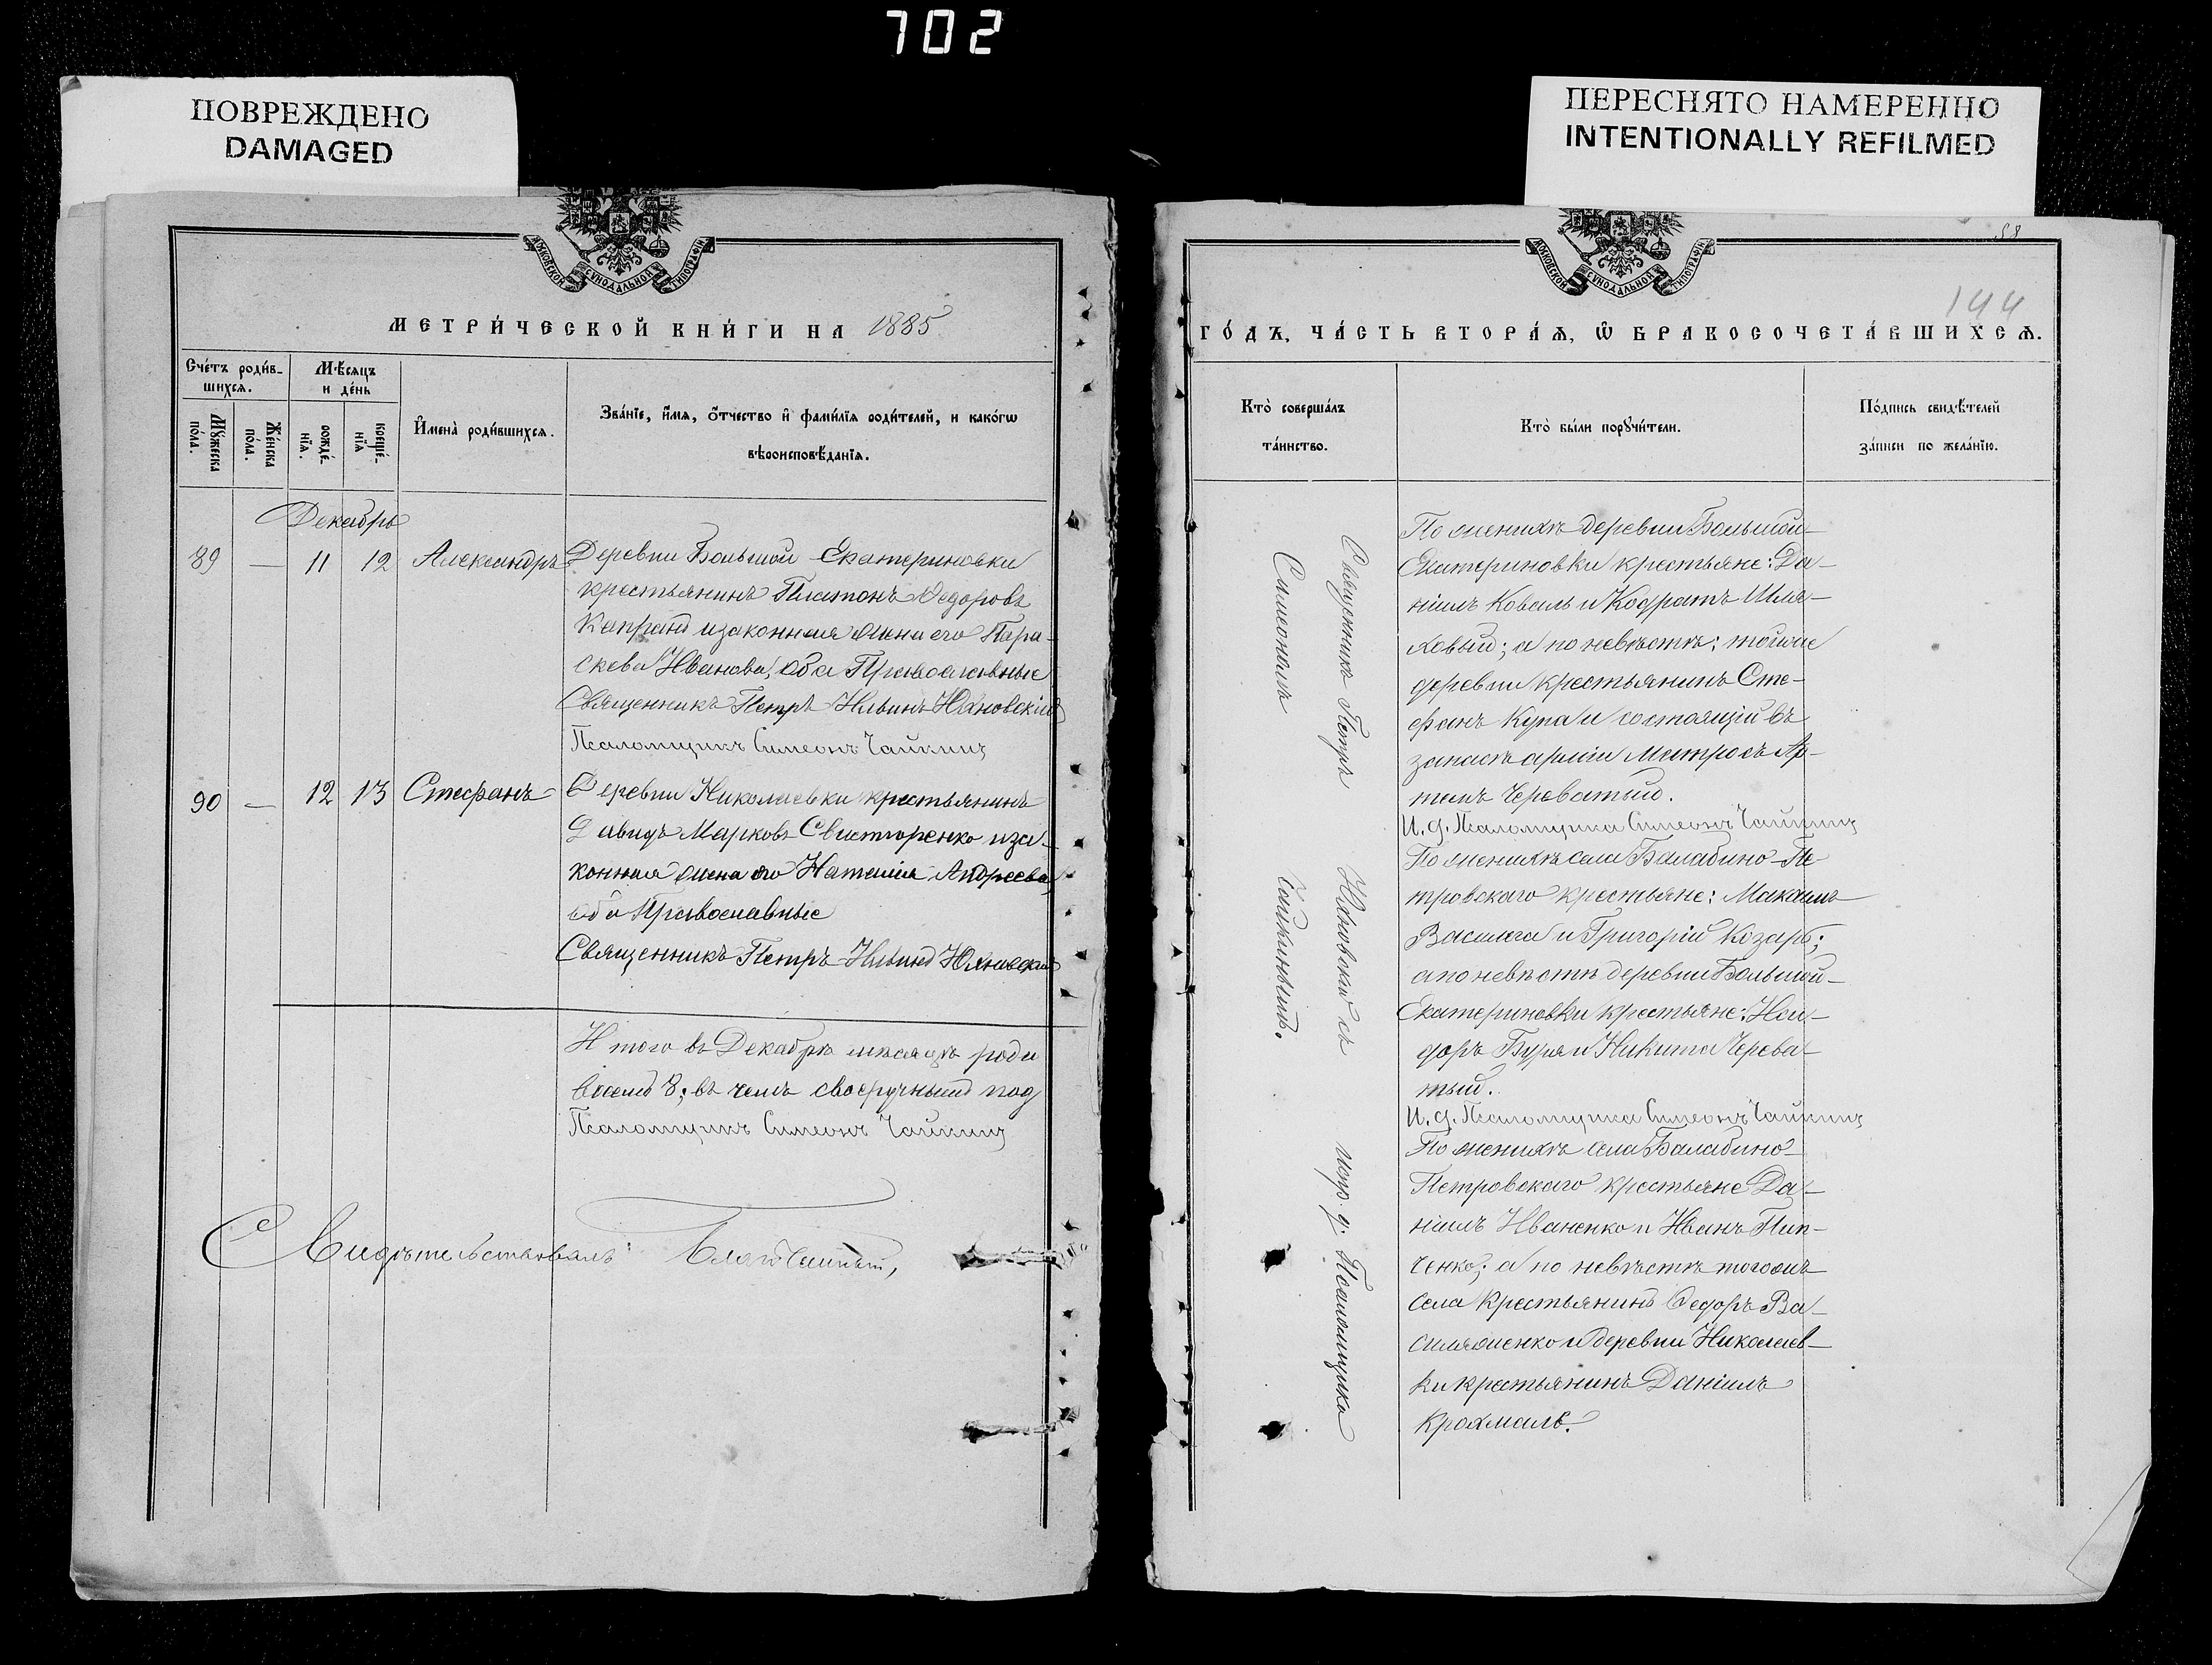 702
ПОВРЕЖДЕНО
DAMAGED
ПЕРЕСНЯТО НАМЕРЕННО
INTENTIONALLY REFILMED
МОСКОВСКОЙ СѴНОДАЛЬНОЙ ТИПОГРАФІИ
МЕТРИ́ЧЕСКОЙ КНИ́ГИ НА 1885
Сче́тъ роди́в-
шихся.
Мѣ́сяцъ
и де́нь
Имена̀ роди́вшихся.
Зва́нїе, и́мя, о́тчество и фами́лїя роди́телей, и како́гѡ
вѣроисповѣ́данїя.
Мꙋ́жеска
по́ла.
Же́нска
по́ла.
рожде́-
нїя.
креще́-
нїя
Декабрь
89 — 11 12 Александръ
Деревни Большой Екатериновки
крестьянинъ Платонъ Ѳедоровъ
и законная жена его Пара-
скева Иванова, оба Православные
Священникъ Петръ Ильинъ Юхновскій
Псаломщикъ Симеонъ Чайкинъ
90 — 12 13 Стефанъ
Деревни Николаевки крестьянинъ
Давидъ Марковъ и за-
конная жена его Наталія Андреева,
оба Православные
Священникъ Петръ Ильинъ Юхновскій
Итого въ Декабрѣ мѣсяцѣ роди
8; въ чемъ своеручнымъ под
Псаломщикъ Симеонъ Чайкинъ
Свидѣтельствовалъ: Благочинный,
МОСКОВСКОЙ СѴНОДАЛЬНОЙ ТИПОГРАФІИ
88
144
ГО́ДЪ, ЧА́СТЬ ВТОРА́Я, Ѡ БРАКОСОЧЕТА́ВШИХСЯ.
Кто̀ соверша́лъ
та́инство.
Кто̀ бы́ли порꙋчи́тели.
По́дпись свидѣ́телей
за́писи по жела́нїю.
Священникъ Петръ Юхновскій съ испр. д. Псаломщика
Симеономъ Чайкинымъ.
По женихѣ деревни Большой-
Екатериновки крестьяне: Да-
ніилъ Коваль и Кодратъ Шля-
ховый; а по невѣстѣ: тойже
деревни крестьянинъ Сте-
фанъ Купа и состоящій въ
запасѣ арміи Матросъ Ар-
темъ Череватый.
И. д. Псаломщика Симеонъ Чайкинъ
По женихѣ села Балабино-Пе-
тровскаго крестьяне: Максимъ
Василега и Григорій Козарь;
а по невѣстѣ деревни Большой-
Екатериновки крестьяне: Иси-
доръ Буря и Никита Черева-
тый.
И. д. Псаломщика Симеонъ Чайкинъ
По женихѣ села Балабино-
Петровскаго крестьяне Да-
ніилъ Иваненко и Иванъ Пип-
ченко; а по невѣстѣ тогожъ
села крестьянинъ Ѳедоръ Ва-
и деревни Николаев-
ки крестьянинъ Даніилъ
Крохмаль.